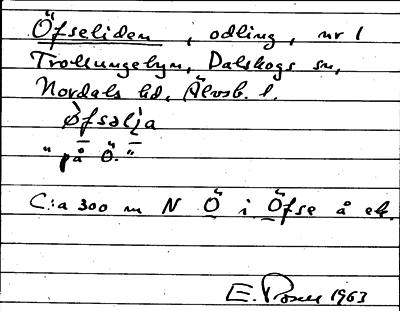 Öfseliden, odling, nr 1
Trollungebyn, Dalskogs sn,
Nordals hd, Älvsb. l.
Øfsəlịa
" på Ö. "
C:a 300 m N Ö i Öfse å ek.
E. 1963